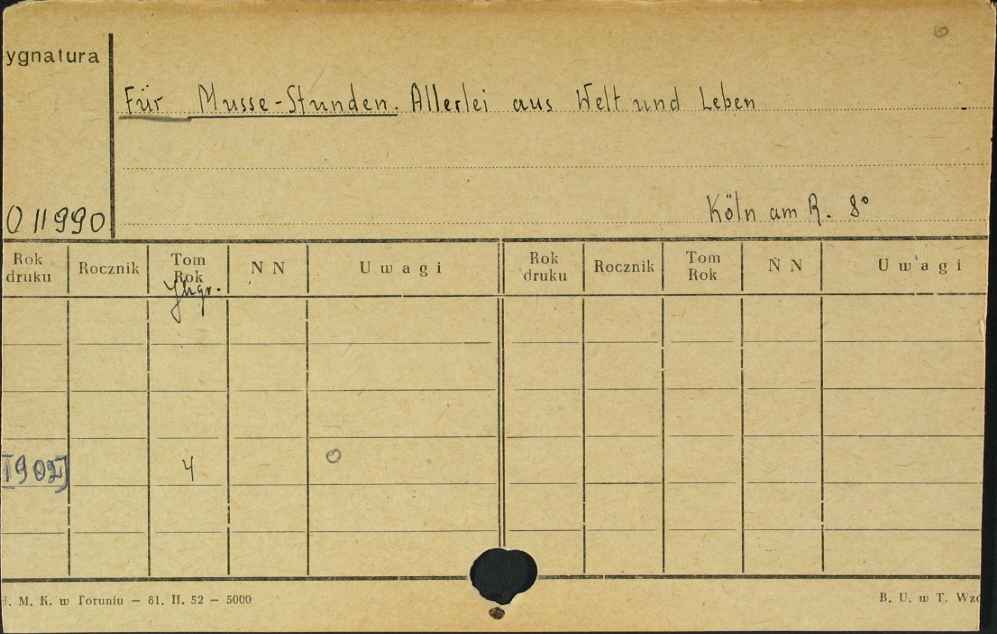 ygnatura
Für Musse-Stunden. Allerlei aus Welt und Leben
Köln am R. 8°
011990
Rok druku Rocznik Tom Rok N N Uwagi Rok druku Rocznik Tom Rok N N Uwagi
Jhgr.
[1902] 4 O
M. K. w Toruniu — 81. II. 52 — 5000 B. U. w T. Wzó